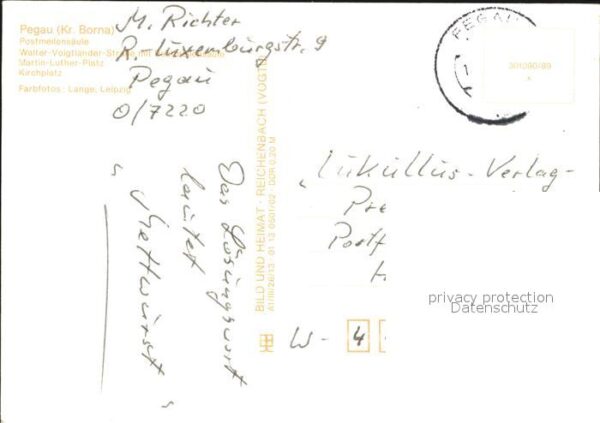 Pegau (Kr. Borna)
Postmeilensäule
Martin-Luther-Platz
Kirchplatz
Farbfotos: Lange, Leipzig
M. Richter
R.-Luxemburgstr. 9
Pegau
O/7220
Das Lösungswort
lautet
„Mettwurst“
BILD UND HEIMAT · REICHENBACH (VOGTL)
A1/III/26/13 · 01 13 0501/02 · DDR 0,20 M
PEGAU
301090/89
„Lukullus-Verlag-
Pre
Postf
W - 4
privacy protection
Datenschutz